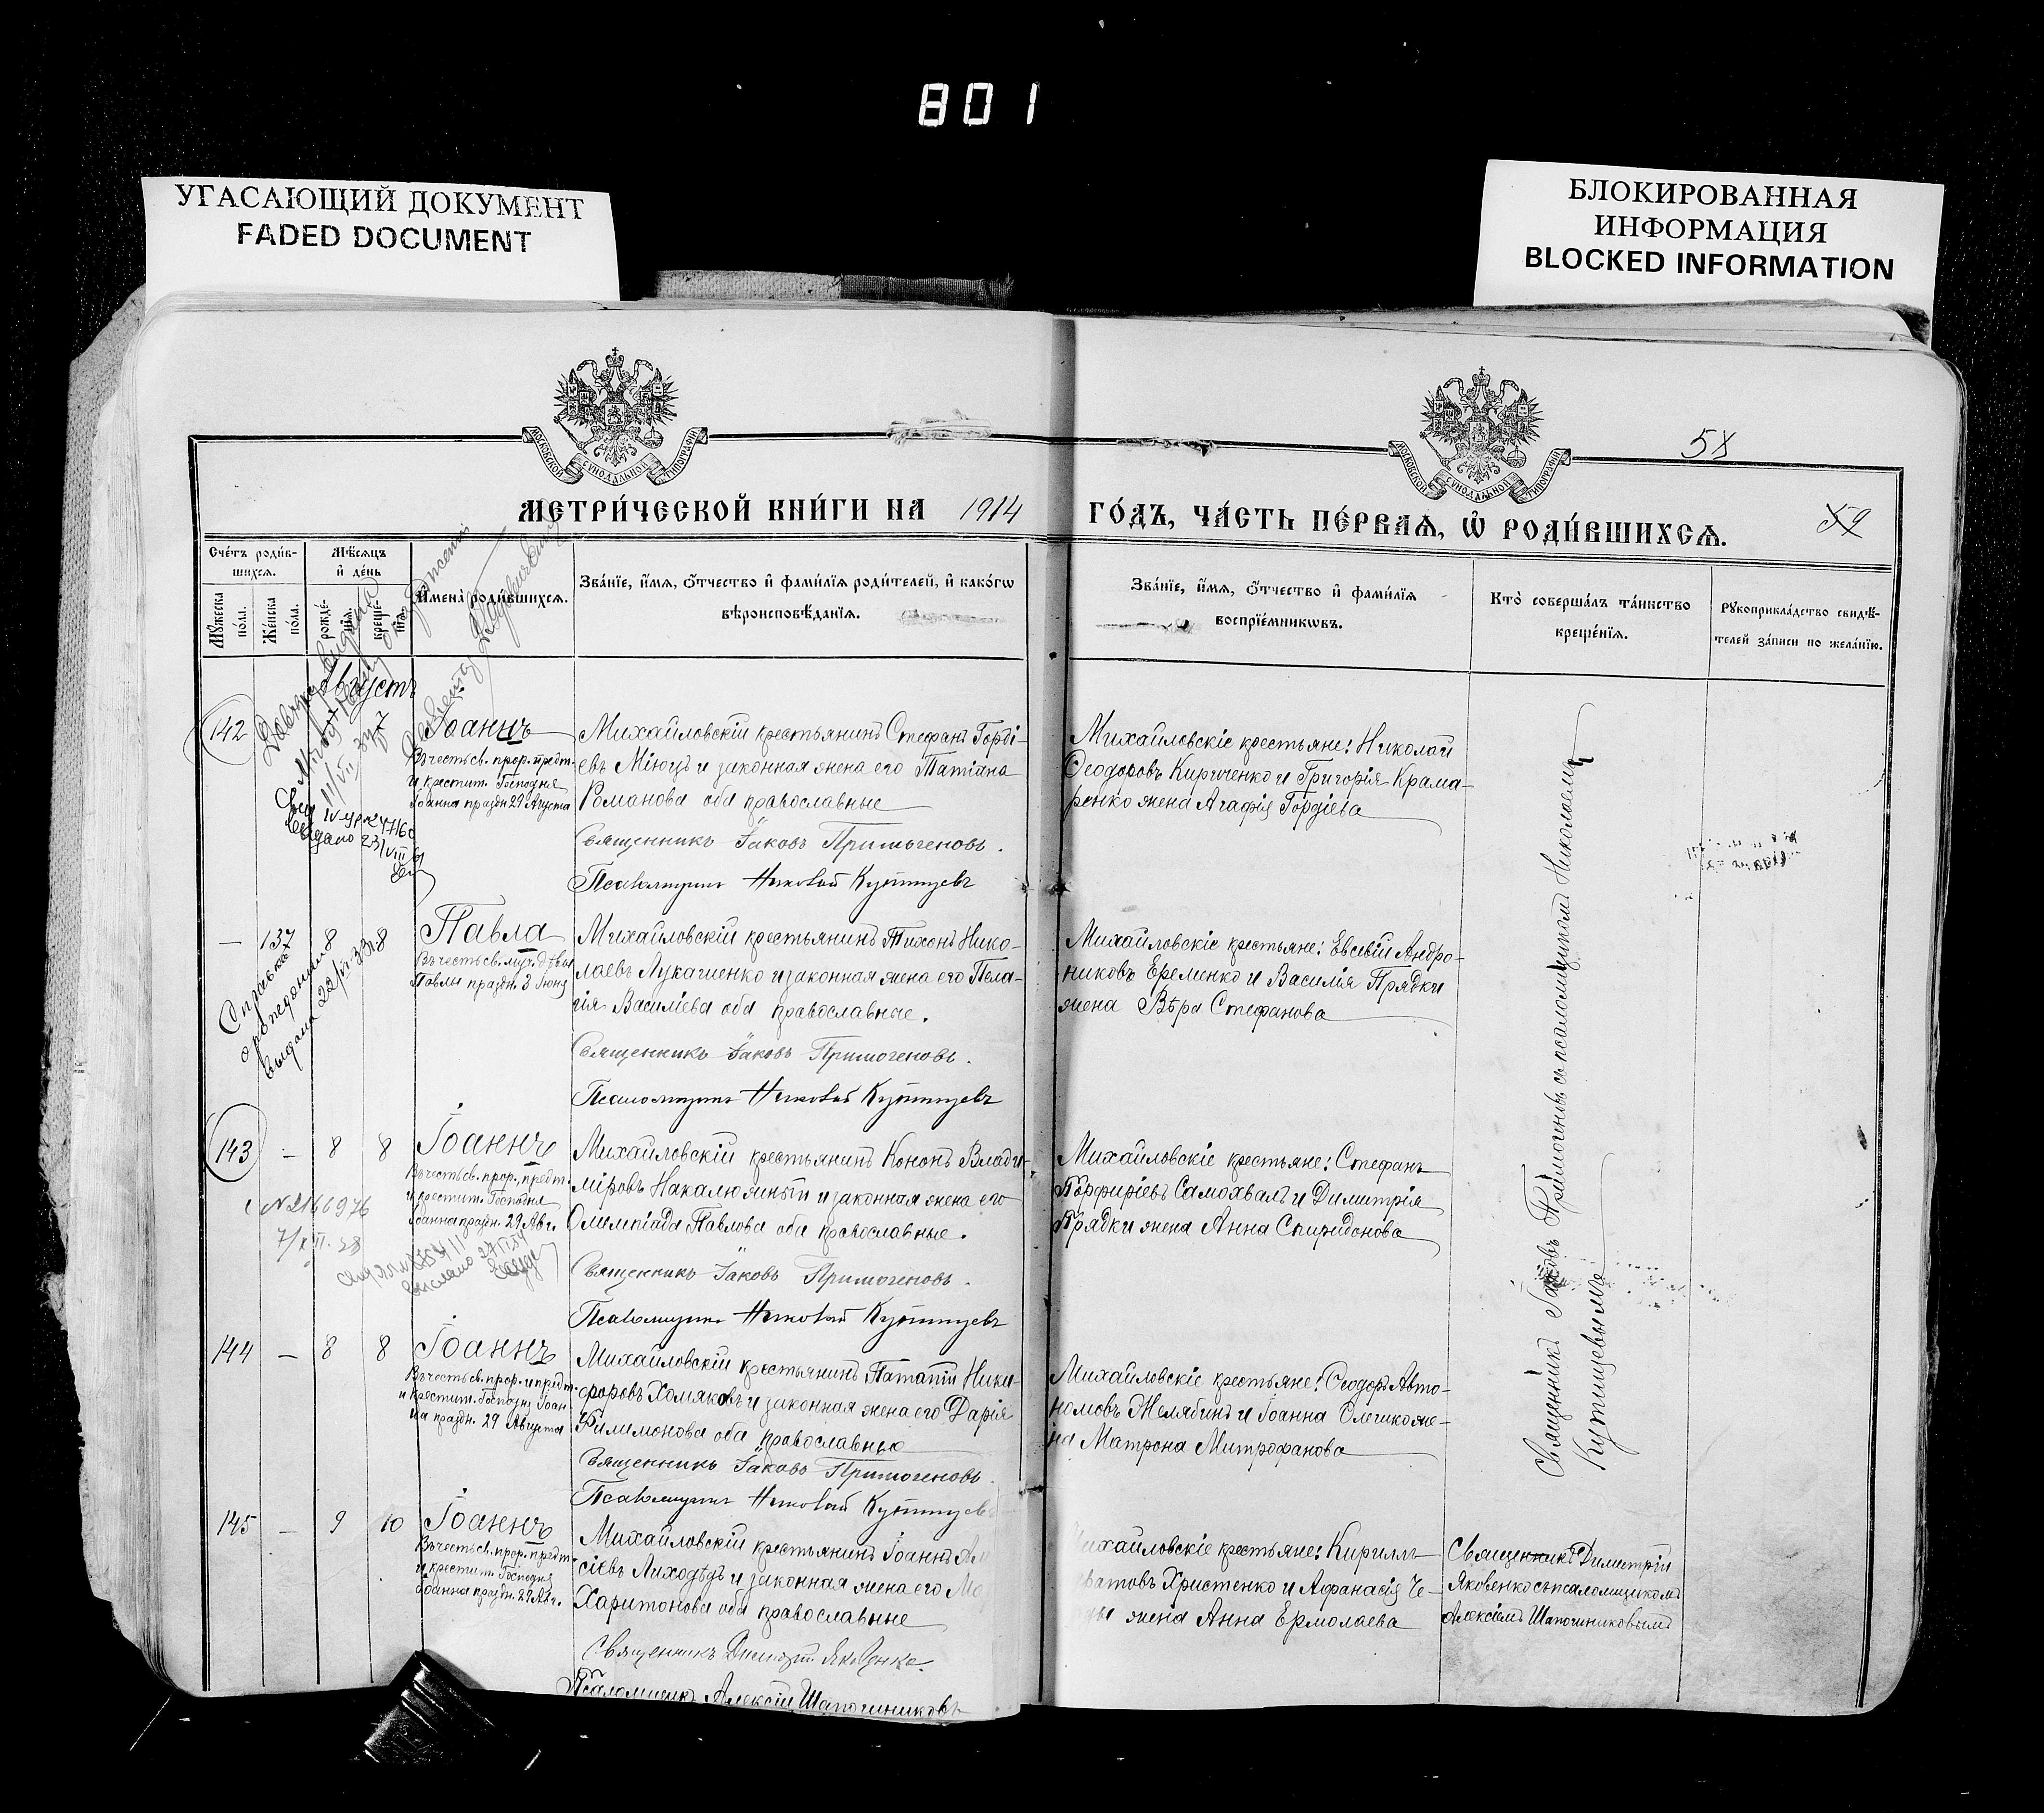 801
УГАСАЮЩИЙ ДОКУМЕНТ
FADED DOCUMENT
БЛОКИРОВАННАЯ
ИНФОРМАЦИЯ
BLOCKED INFORMATION
МОСКОВСКОЙ СѴНОДАЛЬНОЙ ТИПОГРАФІИ
МОСКОВСКОЙ СѴНОДАЛЬНОЙ ТИПОГРАФІИ
58
МЕТРИ́ЧЕСКОЙ КНИ́ГИ НА 1914
ГО́ДЪ, ЧА́СТЬ ПЕ́РВАѦ, Ѡ҆ РОДИ́ВШИХСѦ.
59
Сче́тъ роди́в-
шихсѧ.
Мꙋ́жеска по́ла.
Же́нска по́ла.
Мѣ́сѧцъ
и҆ де́нь
рожде́-
нїѧ.
креще́-
нїѧ.
И҆мена̀ роди́вшихсѧ.
Зва́нїе, и҆́мѧ, ѻ҆́тчество и҆ фами́лїѧ роди́телей, и҆ како́гѡ
вѣроисповѣ́данїѧ.
Зва́нїе, и҆́мѧ, ѻ҆́тчество и҆ фами́лїѧ
воспрїе́мникѡвъ.
Кто̀ соверша́лъ та́инство
креще́нїѧ.
Рꙋкоприкла́дство свидѣ́-
телей за́писи по жела́нїю.
Августъ
142
7
7
Іоаннъ
Въ честь св. прор. предт.
и крестит. Господня
Іоанна праздн 29 Августа
Михайловскій крестьянинъ Стефанъ Горді-
евъ Міюцъ и законная жена его Татіана
Романова оба православные
Священникъ Іаковъ Примогеновъ.
Псаломщикъ Николай Кутищевъ
Михайловскіе крестьяне: Николай
Ѳеодоровъ Кириченко и Григорія Крама-
ренко жена Агафія Гордіева
выдано 23/VIII
—
137
8
8
Павла
Въ честь св. муч. дѣвы
Павлы праздн. 3 Іюня
Михайловскій крестьянинъ Тихонъ Нико-
лаевъ Лукашенко и законная жена его Пела-
гія Василіева оба православные.
Священникъ Іаковъ Примогеновъ.
Псаломщикъ Николай Кутищевъ
Михайловскіе крестьяне: Евсевій Андро-
никовъ Еременко и Василія Прядки
жена Вѣра Стефанова
Справка
о рождении
выдана 22/IV-33г.
143
-
8
8
Іоаннъ
Въ честь св. прор., предт.
и крестит. Господня
Іоанна праздн. 29 Авг.
Михайловскій крестьянинъ Кононъ Влади-
міровъ Накалюжный и законная жена его
Олимпіада Павлова оба православные.
Священникъ Іаковъ Примогеновъ.
Псаломщикъ Николай Кутищевъ
Михайловскіе крестьяне: Стефанъ
Порфиріевъ Самохвалъ и Димитрія
Прядки жена Анна Спиридонова
N 2166976
7/XII-28
выслано
144
—
8
8
Іоаннъ
Въ честь св. прор. и предт.
и Крестит. Господня Іоан-
на праздн. 29 Августа
Михайловскій крестьянинъ Патапій Ники-
форовъ Хомяковъ и законная жена его Дарія
Филимонова оба православные
Священникъ Іаковъ Примогеновъ.
Псаломщикъ Николай Кутищевъ
Михайловскіе крестьяне: Ѳеодоръ Авто-
номовъ Желябинъ и Іоанна Олешко же-
на Матрона Митрофанова
Священникъ Іаковъ Примогеновъ съ псаломщикомъ Николаемъ
Кутищевымъ
145
—
9
10
Іоаннъ
Въ честь св. прор. предт.
и крестит. Господня
Іоанна праздн. 29 Авг.
Михайловскій крестьянинъ Іоаннъ
сіевъ Лиходѣдъ и законная жена его
Харитонова оба православные
Священникъ Димитрій Яковенко.
Псаломщикъ Алексій Шапошниковъ
Михайловскіе крестьяне: Кириллъ
Христенко и Афанасія Че-
жена Анна Ермолаева
Священникъ Димитрій
Яковенко съ псаломщикомъ
Алексіемъ Шапошниковымъ